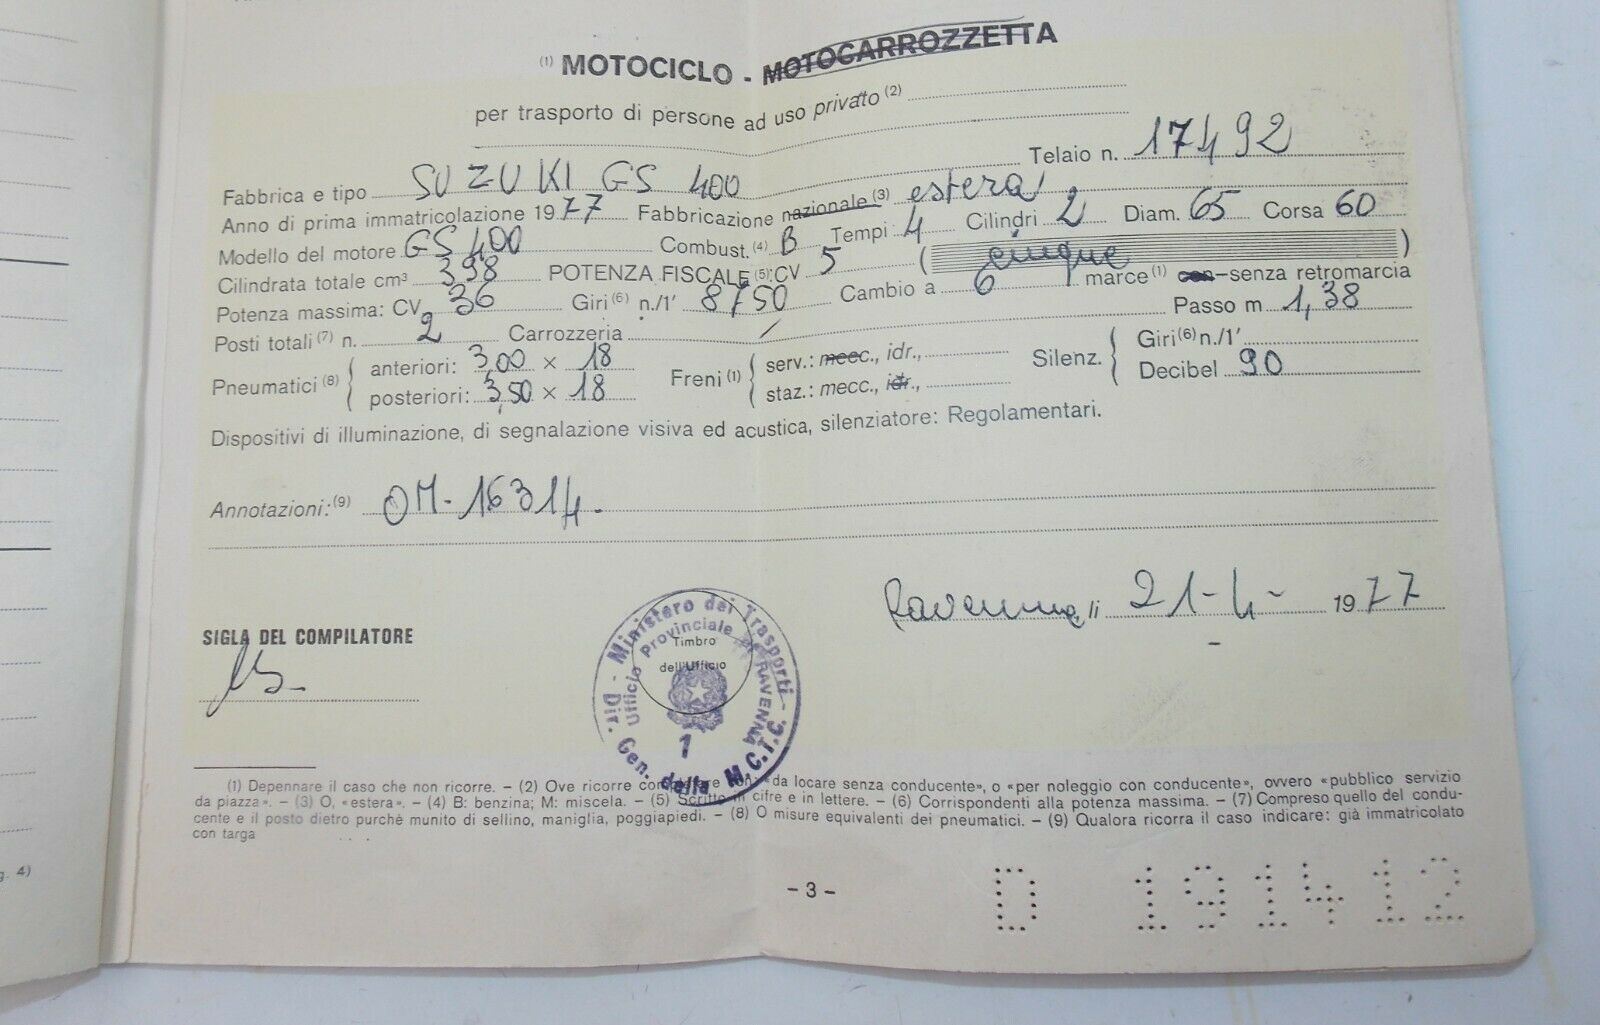 (1) MOTOCICLO - MOTOCARROZZETTA
per trasporto di persone ad uso privato (2)
Telaio n. 17492
Fabbrica e tipo SUZUKI GS 400
Anno di prima immatricolazione 1977 Fabbricazione nazionale (3) estera
Modello del motore GS 400 Combust. (4) B Tempi 4 Cilindri 2 Diam. 65 Corsa 60
Cilindrata totale cm³ 398 POTENZA FISCALE (5): CV 5 ( cinque )
Potenza massima: CV 36 Giri (6) n./1' 8750 Cambio a 6 marce (1) con-senza retromarcia
Posti totali (7) n. 2 Carrozzeria / Passo m 1,38
Pneumatici (8) { anteriori: 3,00 × 18 posteriori: 3,50 × 18
Freni (1) { serv.: mecc., idr., staz.: mecc., idr.,
Silenz. { Giri (6) n./1' Decibel 90
Dispositivi di illuminazione, di segnalazione visiva ed acustica, silenziatore: Regolamentari.
Annotazioni: (9) OM-16314.
Ravenna, li 21-4-1977
SIGLA DEL COMPILATORE
Timbro
dell'Ufficio
Ministero dei Trasporti - Dir. Gen. della M.C.T.C.
Ufficio Provinciale di RAVENNA
1
(1) Depennare il caso che non ricorre. – (2) Ove ricorre con: «da locare senza conducente», o «per noleggio con conducente», ovvero «pubblico servizio
da piazza». – (3) O, «estera». – (4) B: benzina; M: miscela. – (5) Scritto in cifre e in lettere. – (6) Corrispondenti alla potenza massima. – (7) Compreso quello del condu-
cente e il posto dietro purchè munito di sellino, maniglia, poggiapiedi. – (8) O misure equivalenti dei pneumatici. – (9) Qualora ricorra il caso indicare: già immatricolato
con targa
- 3 -
g. 4)
D 191412